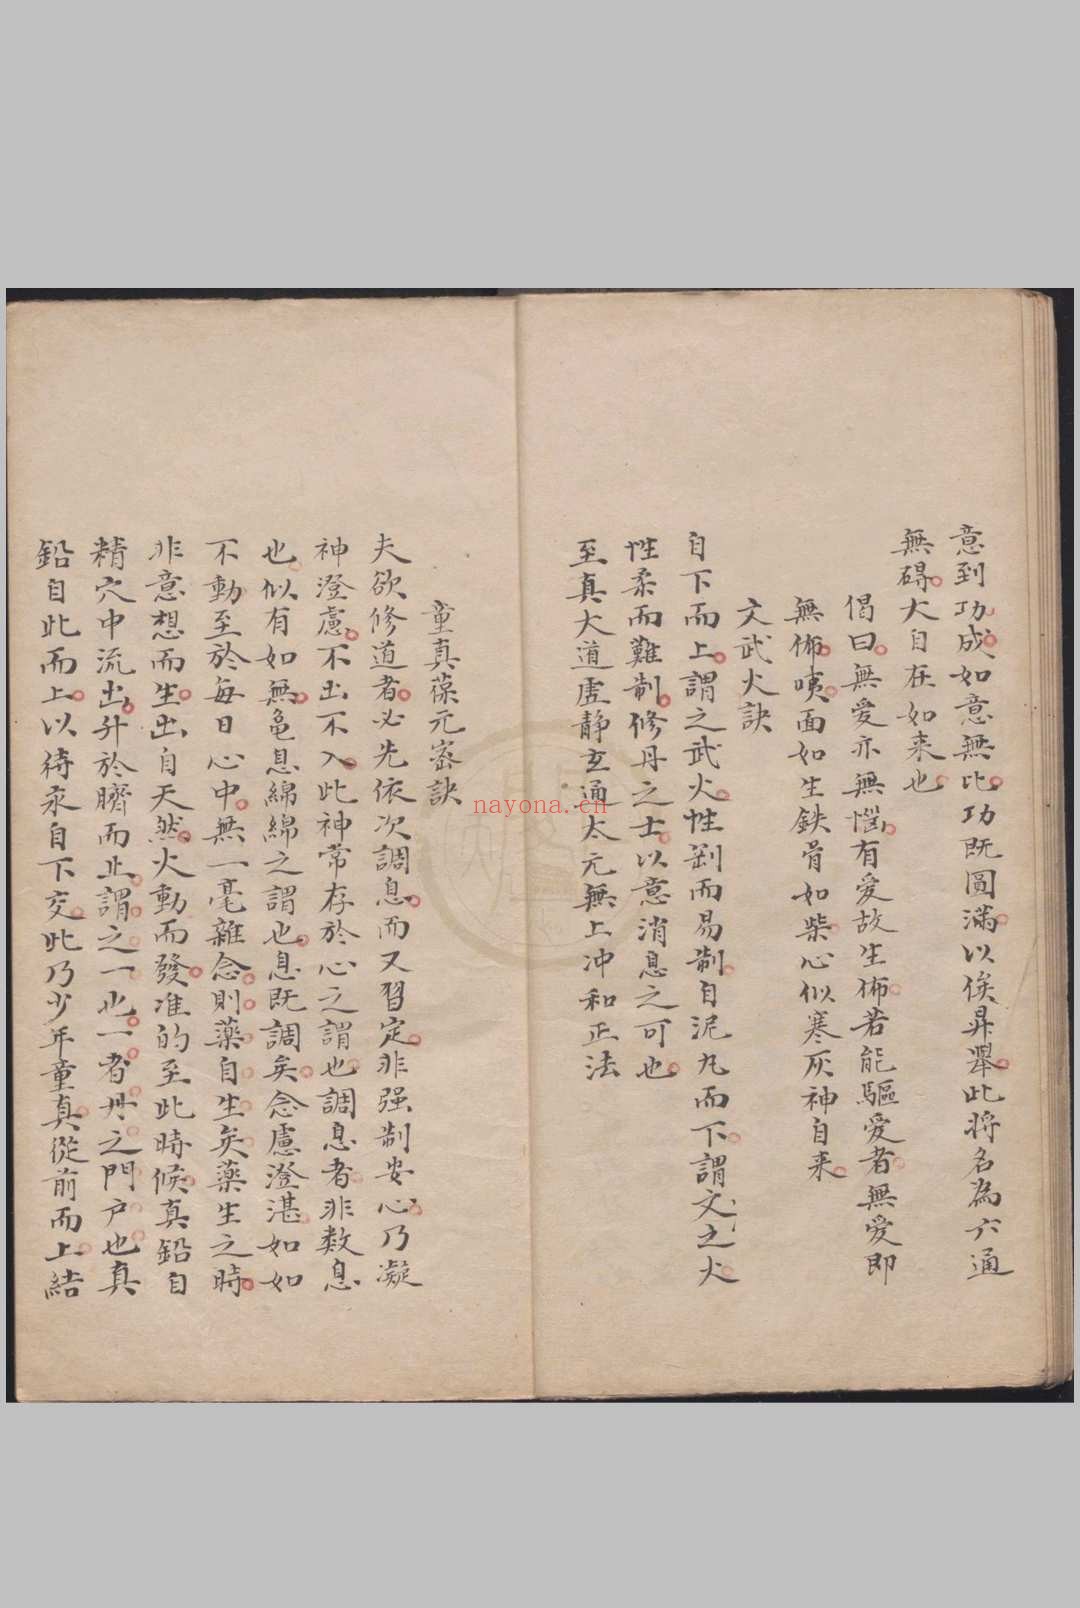 意到功成如意無比功既圓滿以俟昇舉此將名為六通
無碍大自在如来也
偈曰無愛亦無惱有愛故生怖若能驅愛者無愛即
無怖咦面如生鉄骨如柴心似寒灰神自来
文武火訣
自下而上謂之武火性剛而易制自泥丸而下謂文之火
性柔而難制修丹之士以意消息之可也
至真大道虛静玄通太元無上冲和正法
童真葆元密訣
夫欲修道者必先依次調息而又習定非强制安心乃凝
神澄慮不出不入此神常存於心之謂也調息者非数息
也似有如無龟息綿綿之謂也息既調矣念慮澄湛如如
不動至於每日心中無一毫雜念則藥自生矣藥生之時
非意想而生出自天然火動而發准的至此時候真鉛自
精穴中流出升於臍而止謂之一也一者丹之門户也真
鉛自此而上以待汞自下交此乃少年童真從前而上結
nayona.cn